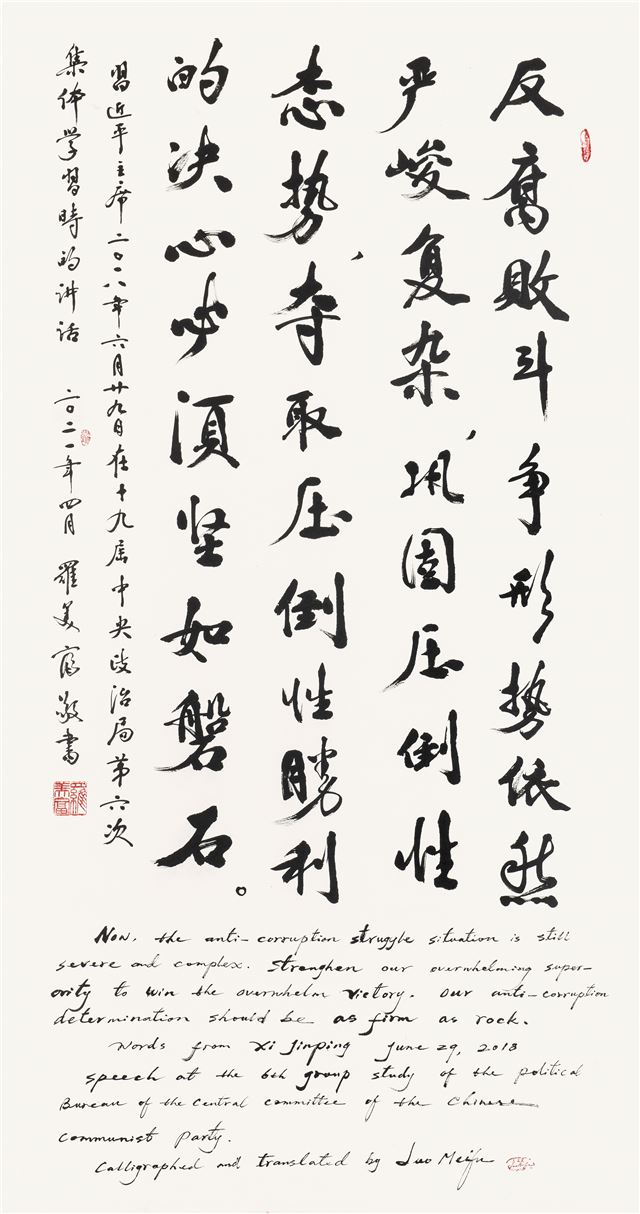 反腐败斗争形势依然
严峻复杂，巩固压倒性
态势，夺取压倒性胜利
的决心必须坚如磐石。
習近平主席二〇一八年六月廿九日在十九届中央政治局第六次
集体学習時的讲话 二〇二一年四月 羅美富敬書
羅美富
Now, the anti-corruption struggle situation is still
severe and complex. Strenghen our overwhelming super-
ority to win the overwhelm victory. Our anti-corruption
determination should be as firm as rock.
Words from Xi Jinping June 29, 2018
speech at the 6th group study of the political
Bureau of the Central committee of the Chinese
communist party.
Calligraphed and translated by Luo Meifu